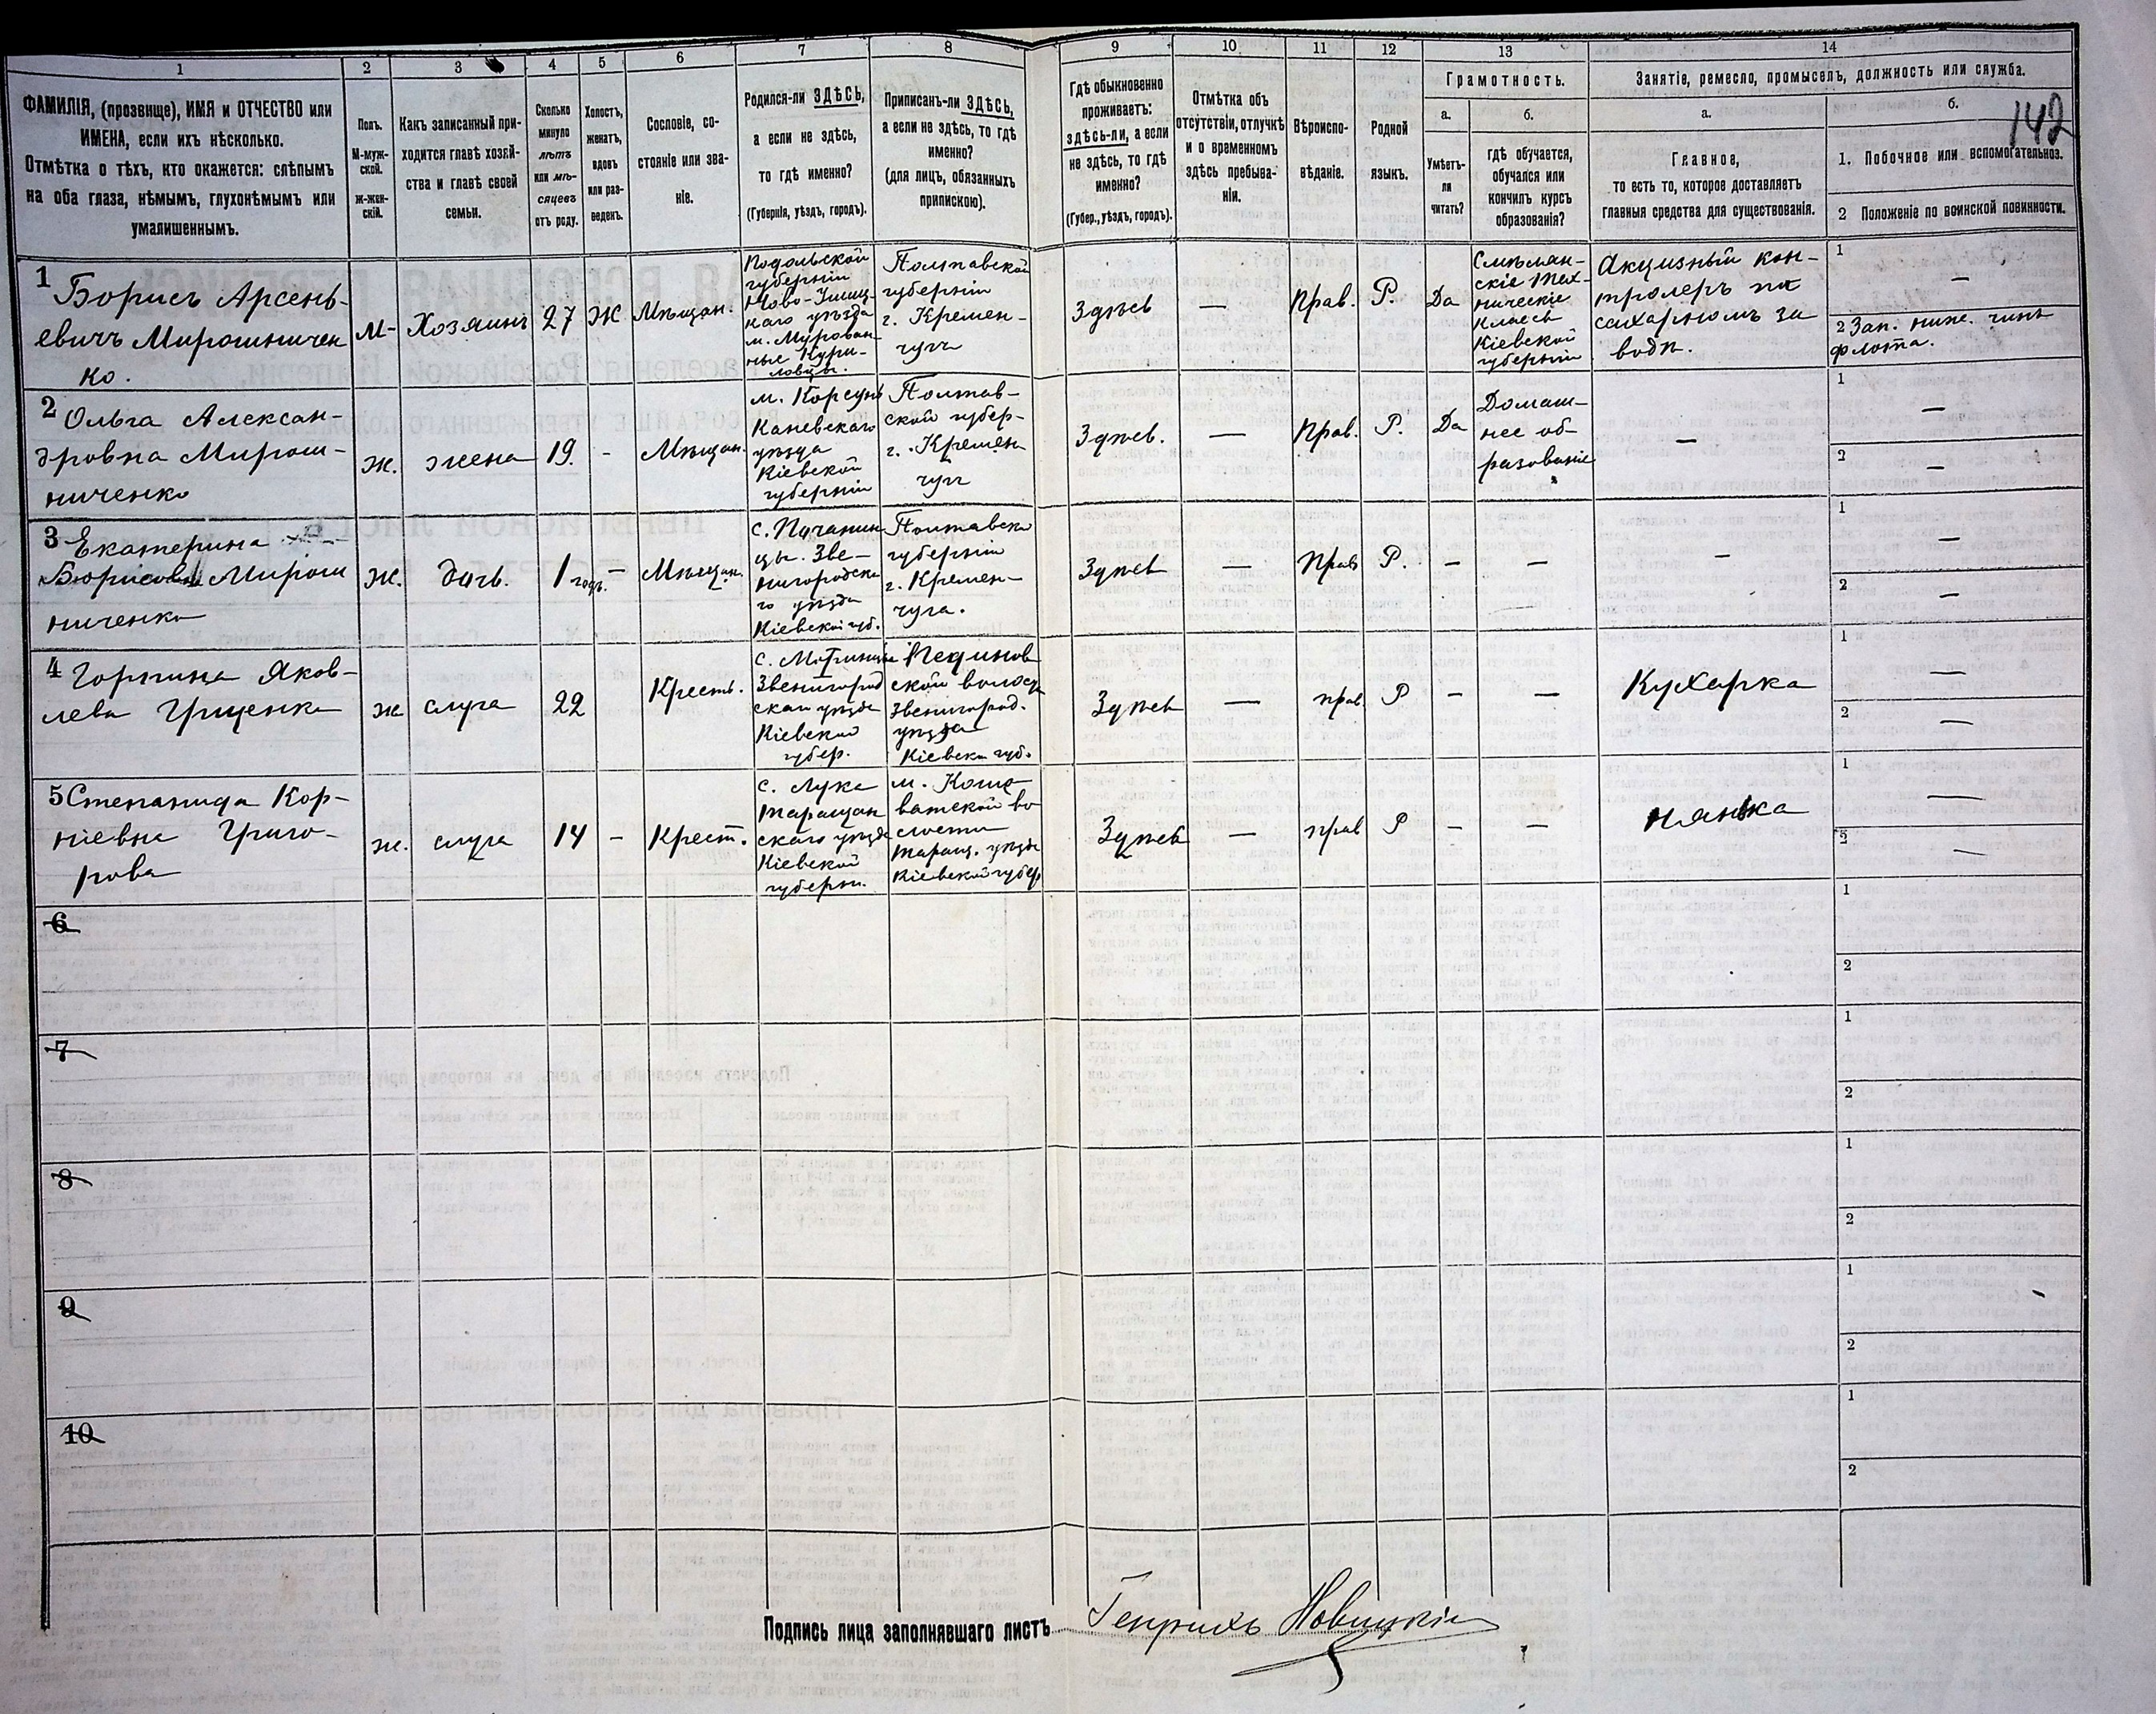 1
2
3
4
5
6
7
8
9
10
11
12
13
14
ФАМИЛІЯ, (прозвище), ИМЯ и ОТЧЕСТВО или
ИМЕНА, если ихъ нѣсколько.
Отмѣтка о тѣхъ, кто окажется: слѣпымъ
на оба глаза, нѣмымъ, глухонѣмымъ или
умалишеннымъ.
Полъ.
М-муж-
ской.
ж-жен-
скій.
Какъ записанный при-
ходится главѣ хозяй-
ства и главѣ своей
семьи.
Сколько
минуло
лѣтъ
или мѣ-
сяцевъ
отъ роду.
Холостъ,
женатъ,
вдовъ
или раз-
веденъ.
Сословіе, со-
стояніе или зва-
ніе.
Родился-ли ЗДѢСЬ,
а если не здѣсь,
то гдѣ именно?
(Губернія, уѣздъ, городъ).
Приписанъ-ли ЗДѢСЬ,
а если не здѣсь, то гдѣ
именно?
(для лицъ, обязанныхъ
припискою).
Гдѣ обыкновенно
проживаетъ:
здѣсь-ли, а если
не здѣсь, то гдѣ
именно?
(Губер., уѣздъ, городъ).
Отмѣтка объ
отсутствіи, отлучкѣ
и о временномъ
здѣсь пребыва-
ніи.
Вѣроиспо-
вѣданіе.
Родной
языкъ.
Грамотность.
а.
Умѣетъ-
ли
читать?
б.
гдѣ обучается,
обучался или
кончилъ курсъ
образованія?
Занятіе, ремесло, промыселъ, должность или служба.
а.
Главное,
то есть то, которое доставляетъ
главныя средства для существованія.
б.
142
1. Побочное или вспомогательное.
2 Положеніе по воинской повинности.
1 Борисъ Арсень-
евичъ Мирошничен
ко.
М-
Хозяинъ
27
Ж
Мѣщан.
Подольской
губерніи
Ново-Ушиц-
каго уѣзда
м. Мурован-
ные Кури-
ловцы.
Полтавской
губерніи
г. Кремен-
чугъ
Здѣсь
—
Прав.
Р.
Да
Смѣлян-
скіе Тех-
ническіе
Классы
Кіевской
губерніи
Акцизный кон-
тролеръ на
сахарномъ за
водѣ.
1
—
2 Зап. ниж. чинъ
флота.
2 Ольга Алексан-
дровна Мирош-
ниченко
ж.
жена
19.
-
Мѣщан.
м. Корсунь
Каневскаго
уѣзда
Кіевской
губерніи
Полтав-
ской губер-
г. Кремен
чугъ
Здѣсь.
—
Прав.
Р.
Да
Домаш-
нее об-
разованіе
—
1
—
2
—
3 Екатерина
Борисовна Мирош
ниченко
ж.
дочь.
1 годъ.
—
Мѣщан.
с. Почапин
цы. Зве-
нигородска
го уѣзда
Кіевской губ.
Полтавско
губерніи
г. Кремен-
чуга.
Здѣсь
—
Прав
Р.
-
-
-
1
—
2
—
4 Горпина Яков-
лева Гриценко
ж
слуга
22
Крестъ.
с. Моринцы
Звенигород
скаго уѣзда
Кіевской
губер.
Пединов
ской волости
Звенигород.
уѣзда
Кіевско губ.
Здѣсь
—
прав.
Р
-
—
Кухарка
1
—
2
—
5 Степанида Кор-
ніевна Григо-
рова
ж.
слуга
14
-
Крест.
с. Лука
Таращан
скаго уѣзда
Кіевской
губерн.
м. Коше
ватской во
лости
Таращ. уѣзда
Кіевской губер
Здѣсь
—
прав
Р
-
—
нянька
1
—
2
—
6
1
2
7
1
2
8
1
2
9
1
2
10
1
2
Подпись лица заполнявшаго листъ Генрихъ Новицкій